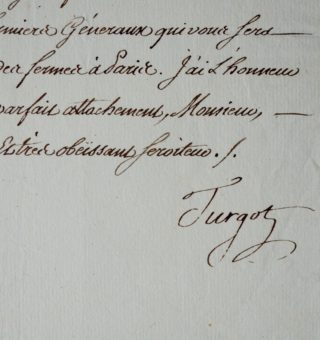 fermiers Généraux qui vous sera
des fermes à Paris. J'ai l'honneur
parfait attachement, Monsieur,
Et très obéissant serviteur ./.
Turgot